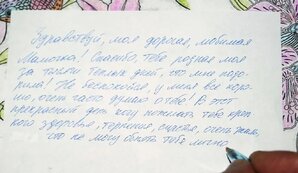 Здравствуй, моя дорогая, любимая
Мамочка! Спасибо, тебе родная моя
за тысячи теплых дней, что мне пода-
рила! Не беспокойся, у меня все хоро-
шо, очень часто думаю о тебе! В этот
прекрасный день хочу пожелать тебе креп-
кого здоровья, терпения, счастья, очень жаль,
что не могу обнять тебя лично